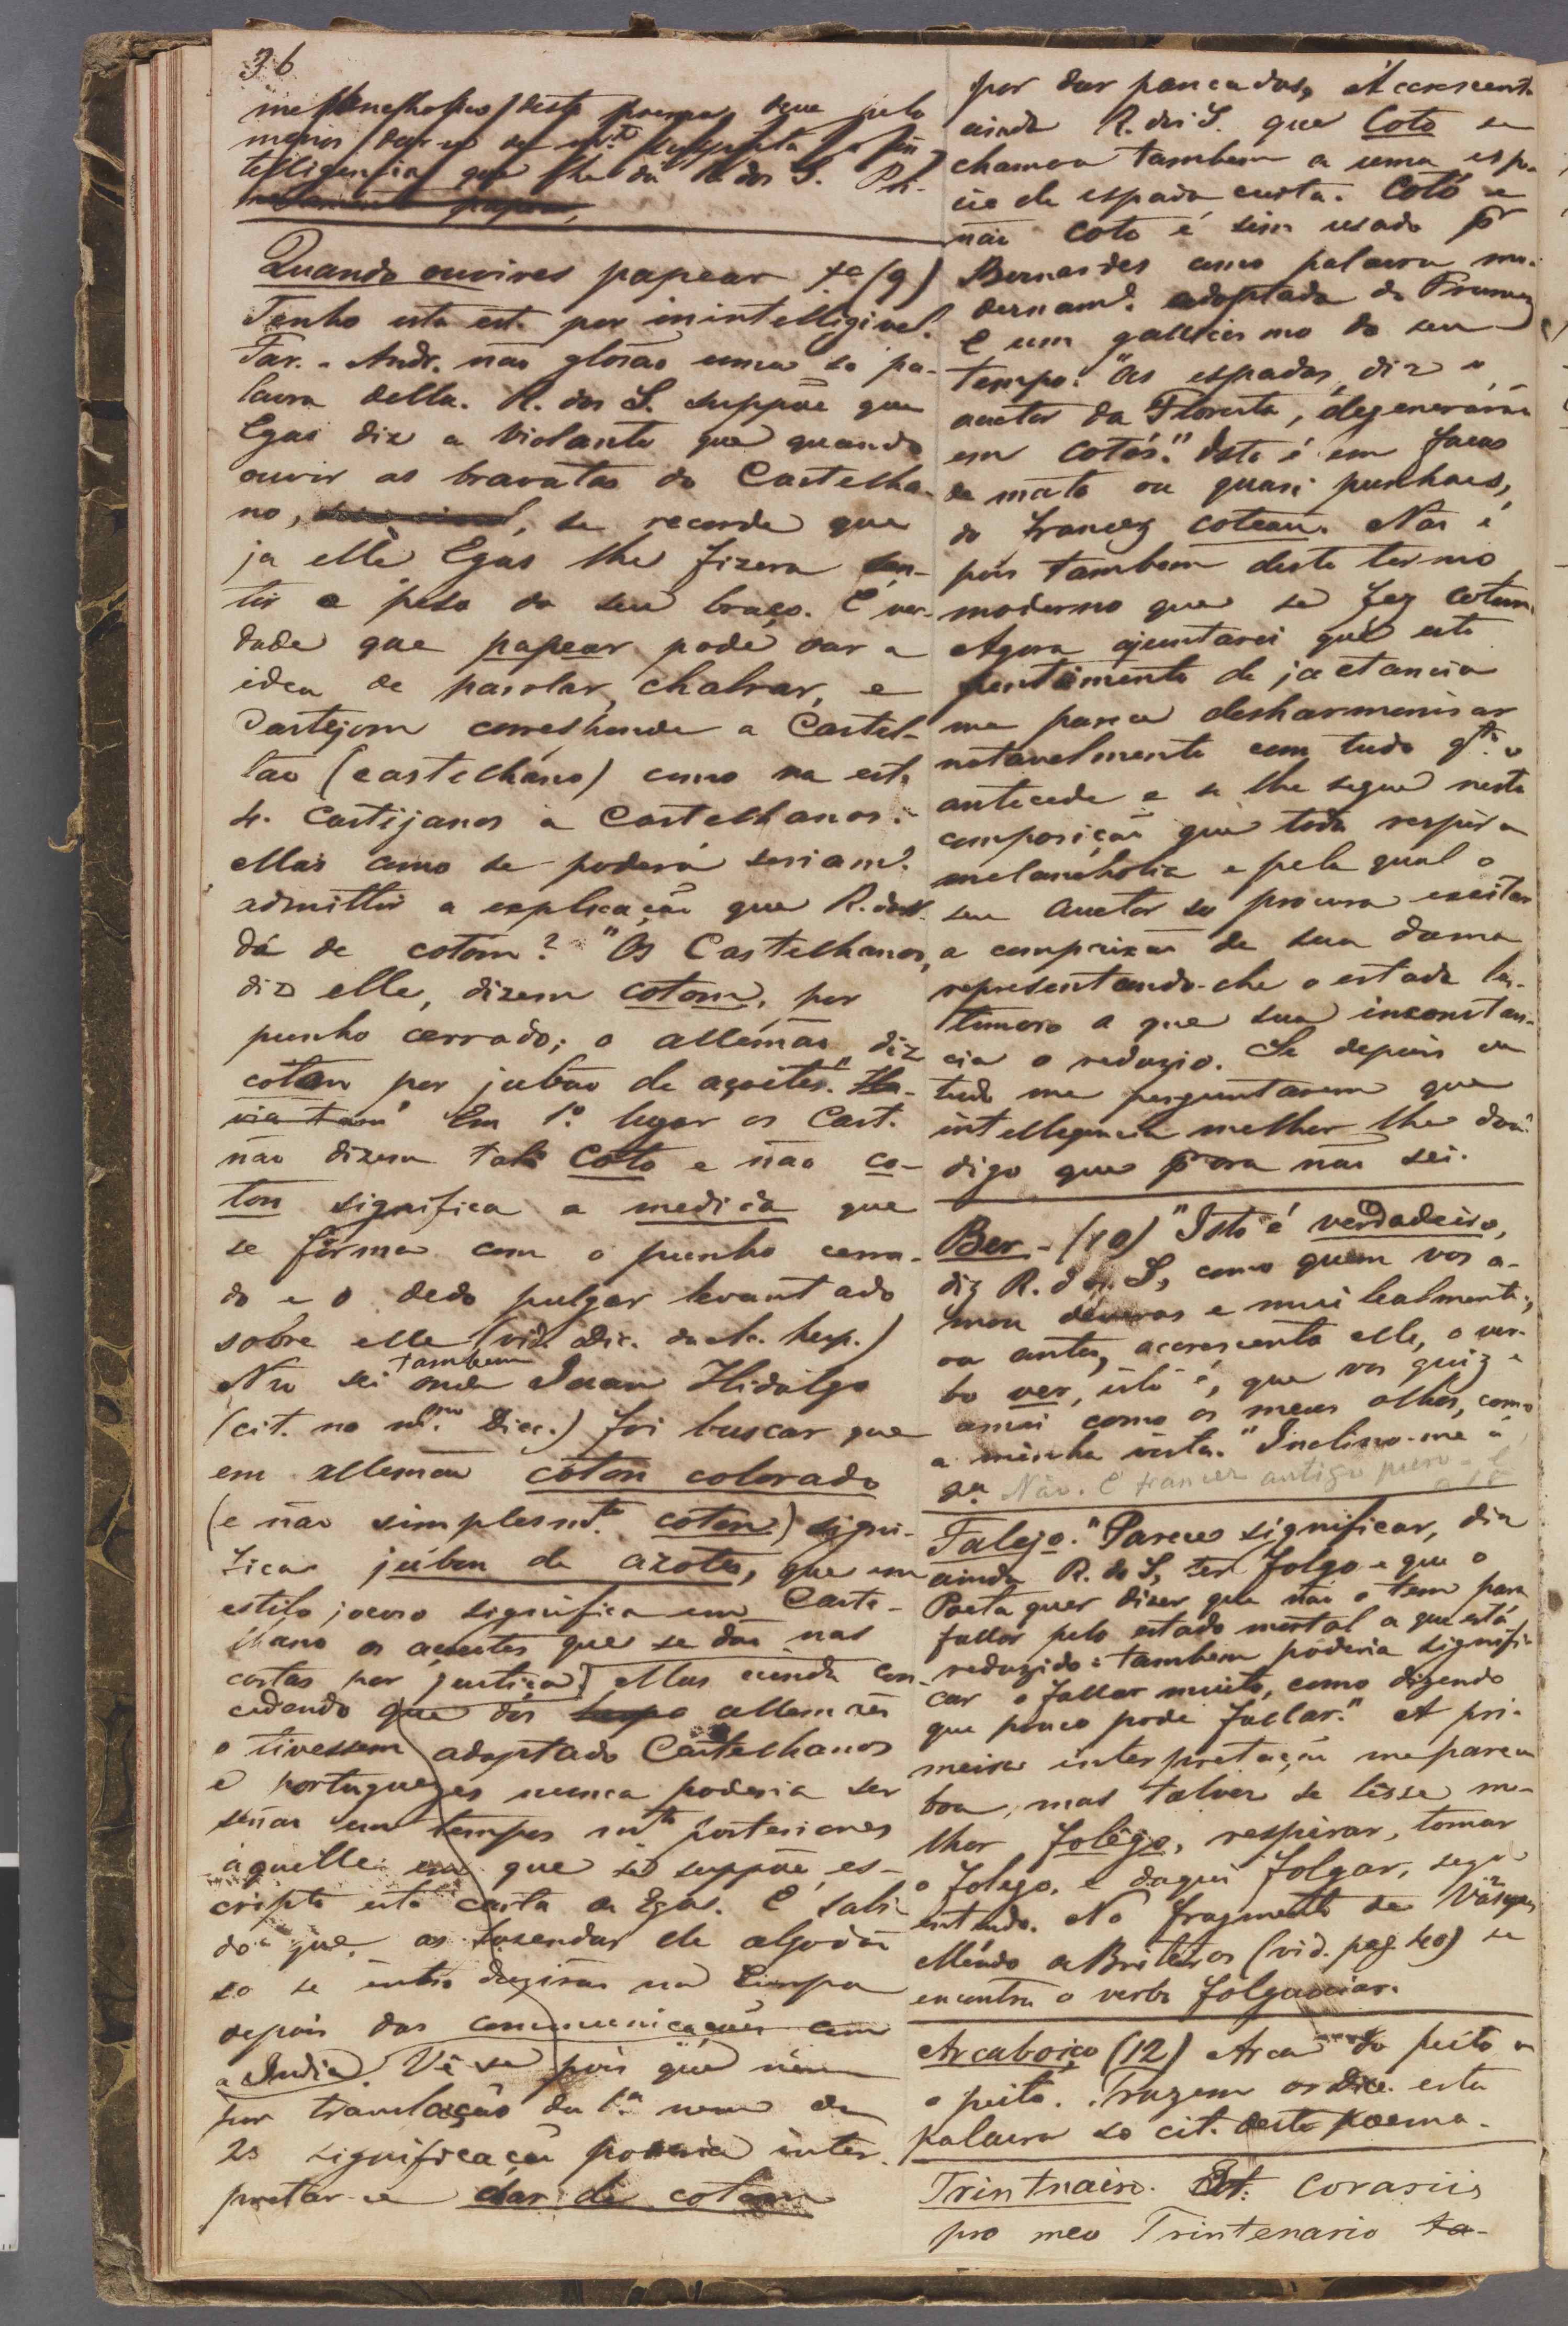 36
deste poema deve pelo
menos
telligencia que lhe dá R. dos S.
Quando ouvires papear &c (9)
Tenho esta est. por inintelligivel.
Far. e Andr. não glosão uma só pa-
lavra della. R. dos S. suppõe que
Egas diz a Violante que quando
ouvir as bravatas do Castelha-
no, se recorde que
ja elle Egas lhe fizera sen-
tir o peso do seu braço. E ver-
dade que papear pode dar a
idea de parolar, chalrar, e
Castejom corresponde a Castel-
lão (castelhano) como na est.
4. Castijanos a Castelhanos.
Mas como se poderá seriam.e
admittir a explicação que R. dos S.
dá de cotom? "Os Castelhanos,
diz elle, dizem cotom, por
punho cerrado; o allemão diz
cotan por jubão de açoites." Ha-
via tam Em 1.º lugar os Cast.
não dizem tal: Coto e não co-
ton significa a medida que
se fórma com o punho cerra-
do e o dedo pulgar levantado
sobre elle (vid. Dic. da Ac. hesp.)
Não sei tambem onde Juan Hidalgo
(cit. no m.mo Dicc.) foi buscar que
em allemão coton colorado
(e não simplesm.te coton) signi-
ficar jubon de azotes, que em
estilo jocoso significa em Caste-
lhano os açoutes que se dão nas
costas por justiça. Mas ainda con-
cedendo que dos allemães
o tivessem adoptado Castelhanos
e Portuguezes nunca poderia ser
senão em tempos m.to posteriores
áquelle em que se suppõe es-
cripta esta carta de Egas. E sabi-
do que as fazendas de algodão
so se introduzirão na Europa
depois das communicações com
a India. Vê-se pois que nem
por translação da 1.ª nem da
2.ª significação poderia inter-
pretar-se dar de cotom
por dar pancadas. Accrescenta
ainda R. dos S. que Coto se
chamava tambem a uma espe-
cie de espada curta. Cotó e
não coto é sim usado por
Bernardes como palavra mo-
dernam.e adoptada do Francez
E um gallicismo do seu
tempo: "As espadas, diz o
auctor da Floresta, degenerárão
em cotós." Isto é em facas
de mato ou quasi punhaes,
do francez coteau. Não é
pois tambem deste termo
moderno que se fez cotom.
Agora ajuntarei que este
sentimento de jactancia
me parece desharmonisar
notavelmente com tudo q.to o
antecede e se lhe segue nesta
composição que toda respira
melancholia e pela qual o
seu auctor so procura excitar
a compaixão de sua dama
representando-lhe o estado las-
timoso a que sua inconstan-
cia o reduzio. Se depois de
tudo me perguntarem que
intelligencia melhor lhe dou
digo que por ora não sei.
Ber - (10) "Isto é verdadeiro,
diz R. dos S., como quem vos a-
mou deveras e mui lealmente,
ou antes, accrescenta elle, o ver-
bo ver, isto é, que vos quiz e
amei como os meus olhos, como
a minha vista." Inclino-me á
2.ª Não. É francez antigo puro.
Falejo. "Parece significar, diz
ainda R. dos S., ter folgo e que o
Poeta quer dizer que não o tem para
fallar pelo estado mortal a que está
reduzido: tambem poderia signifi-
car o fallar muito, como dizendo
que pouco pode fallar." A pri-
meira interpretação me parece
boa, mas talvez se lêsse me-
lhor folêgo, respirar, tomar
o folego, e daqui folgar, segu
entendo. No fragmento de Vasques
Mendo de Briteiros (vid. pag. 40) se
encontra o verbo
Arcaboiço (12) Arca do peito ou
o peito. Trazem os dicc. esta
palavra so cit. deste poema.
Trintnairo. Est. Corasiis
pro meo Trintenario ta-